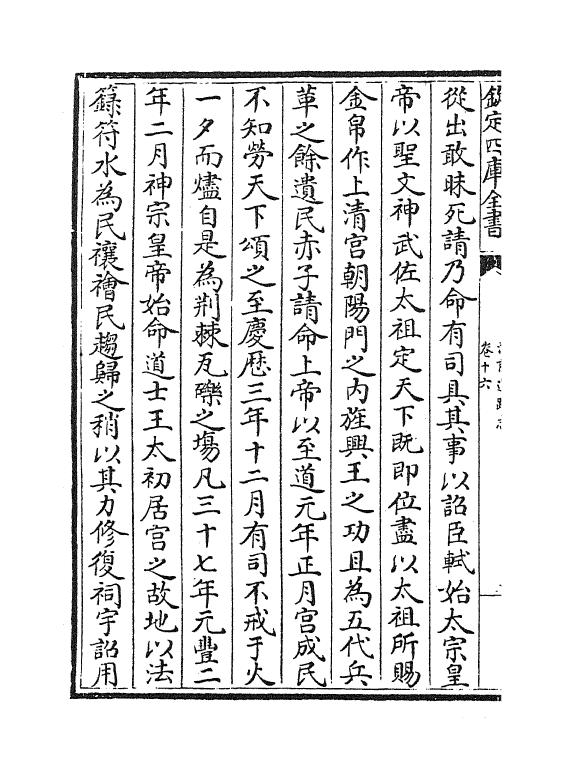 欽定四庫全書
卷十六
從出敢昧死請乃命有司具其事以詔臣軾始太宗皇
帝以聖文神武佐太祖定天下既即位盡以太祖所賜
金帛作上清宫朝陽門之内旌興王之功且為五代兵
革之餘遺民赤子請命上帝以至道元年正月宫成民
不知勞天下頌之至慶厯三年十二月有司不戒于火
一夕而燼自是為荆棘瓦礫之塲凡三十七年元豐二
年二月神宗皇帝始命道士王太初居宫之故地以法
籙符水為民禳禬民趨歸之稍以其力修復祠宇詔用